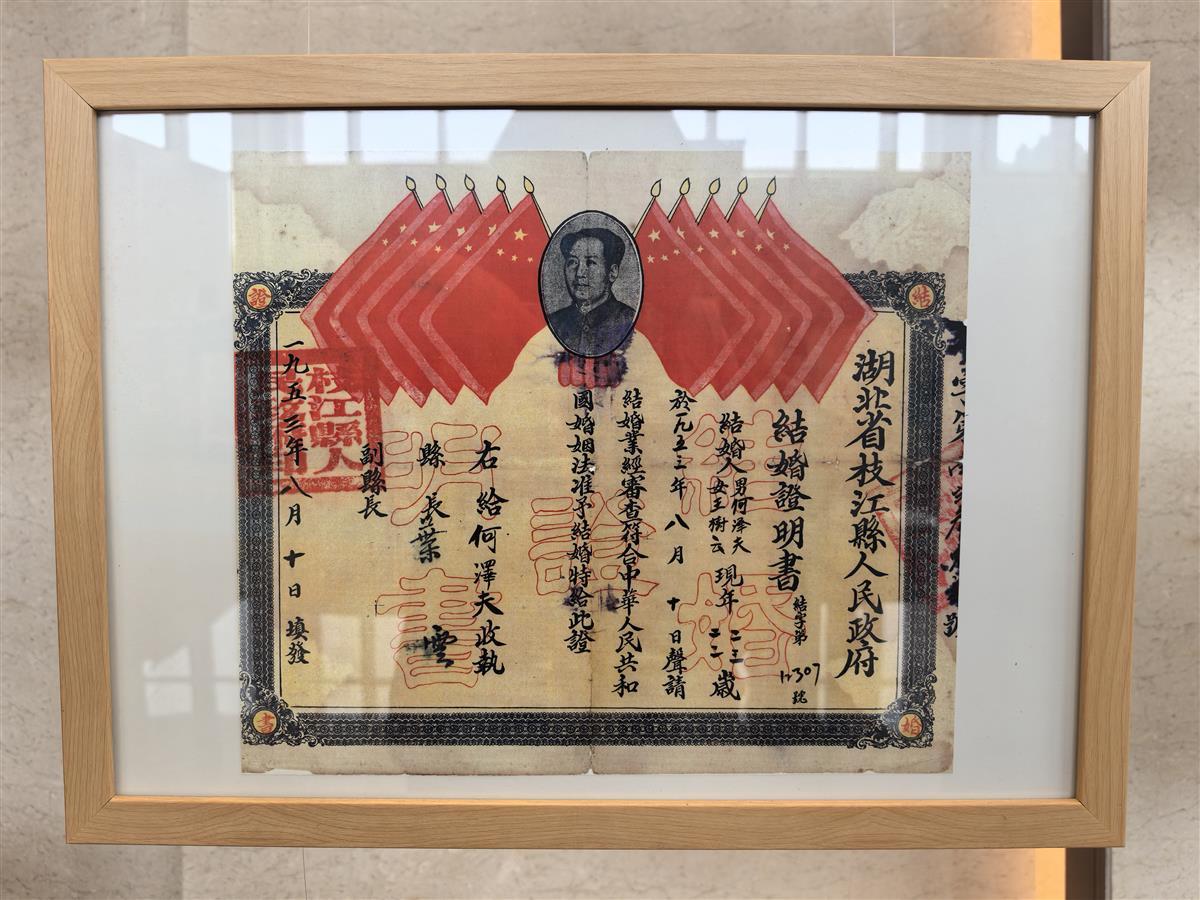 湖北省枝江縣人民政府
結婚證明書
結字第1307號
結婚人男何澤夫 女王樹云 現年二三 二二歲
於一九五三年八月十日聲請
結婚業經審查符合中華人民共和
國婚姻法准予結婚特給此證
右給何澤夫收執
縣長葉雲
副縣長
一九五三年八月十日填發
枝江縣人
結
婚
證
書
結婚證明書